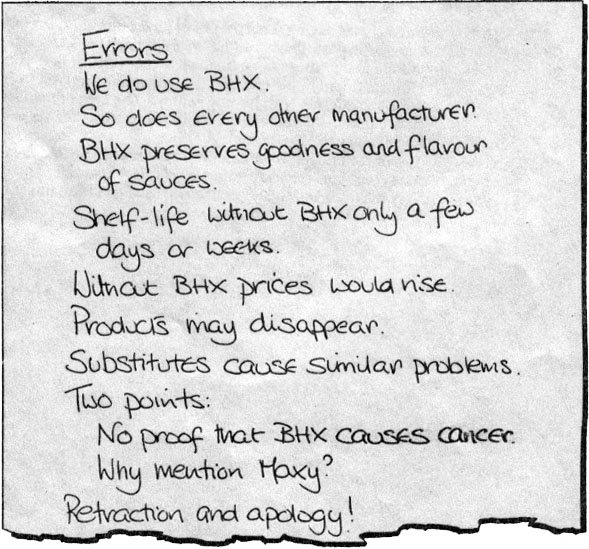 Errors
We do use BHX.
So does every other manufacturer.
BHX preserves goodness and flavour
of sauces.
Shelf-life without BHX only a few
days or weeks.
Without BHX prices would rise.
Products may disappear.
Substitutes cause similar problems.
Two points:
No proof that BHX causes cancer.
Why mention Maxy?
Retraction and apology!